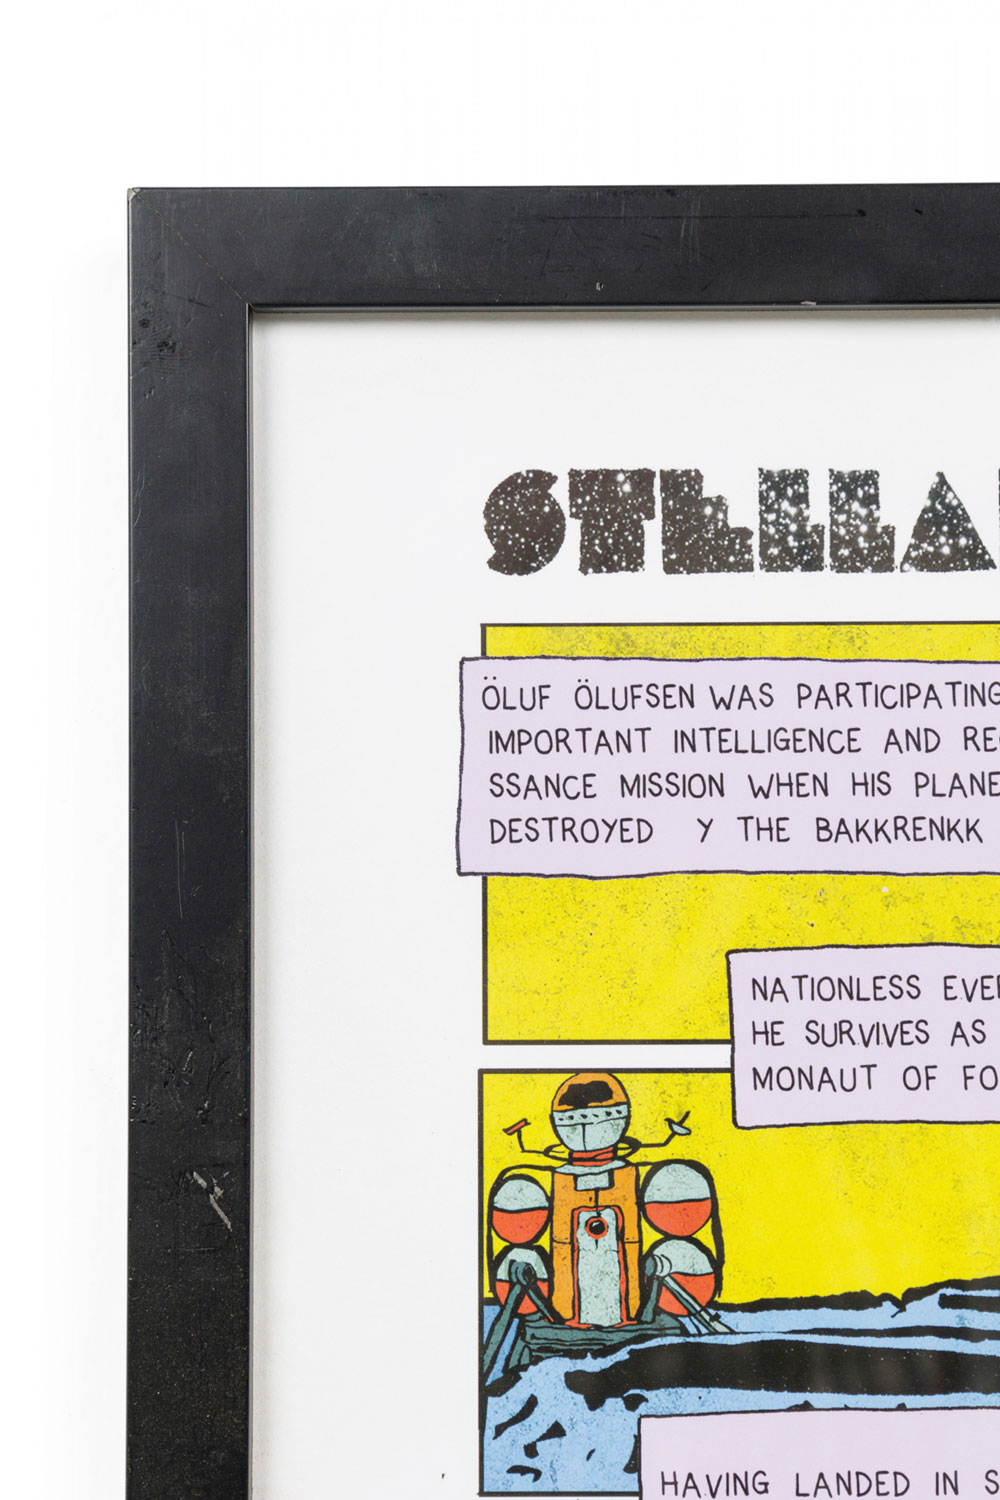 STELLA
ÖLUF ÖLUFSEN WAS PARTICIPATING
IMPORTANT INTELLIGENCE AND RE
SSANCE MISSION WHEN HIS PLANE
DESTROYED Y THE BAKKRENKK
NATIONLESS EVE
HE SURVIVES AS
MONAUT OF FO
HAVING LANDED IN S